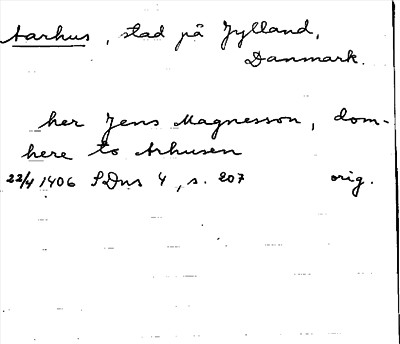 Aarhus, stad på Jylland,
Danmark.
her Jens Magnesson, dom-
here to Arhusen
22/4 1406 SDns 4, s. 207 orig.